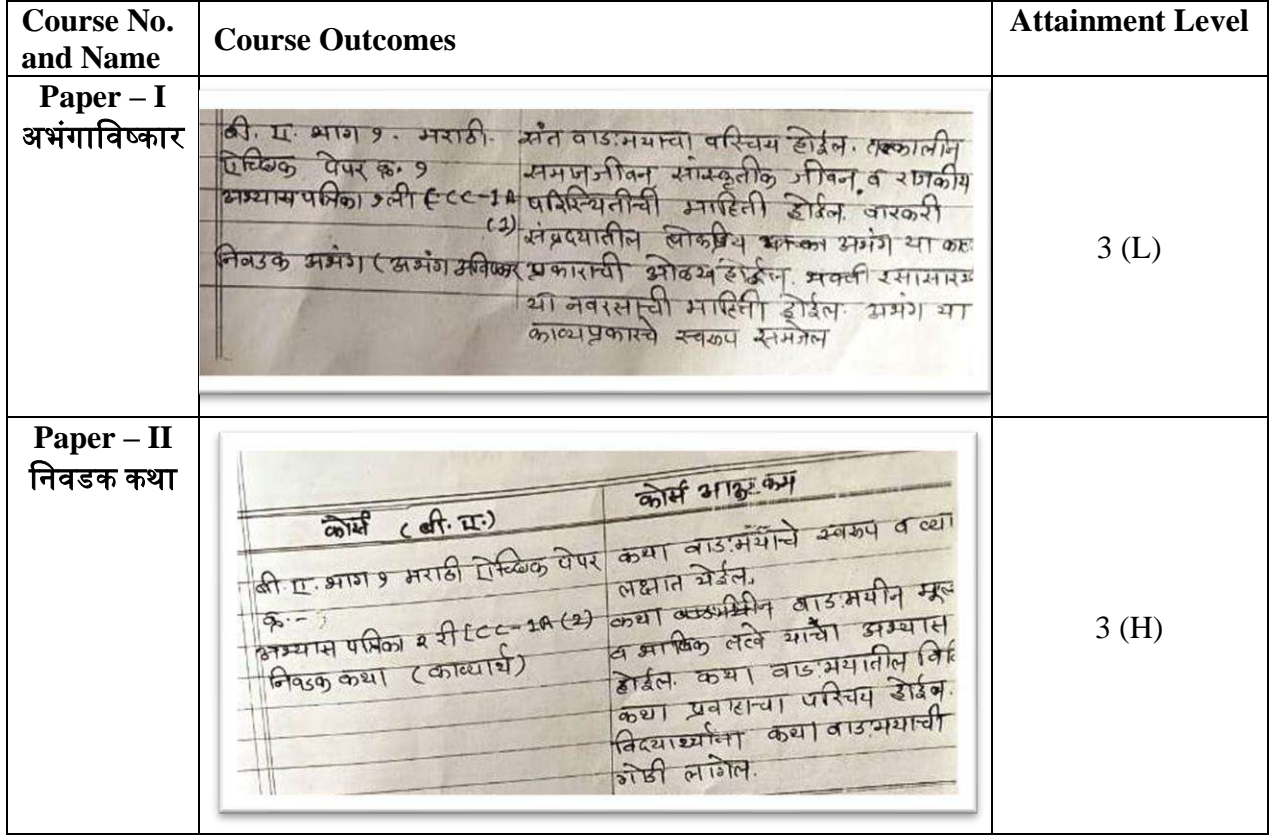 Course No. and Name
Course Outcomes
Attainment Level
Paper – I
अभंगाविष्कार
बी. ए. भाग १. मराठी.
ऐच्छिक पेपर क्र. १
अभ्यास पत्रिका १ली
निवडक अभंग (अभंग
संत वाङ:मयाचा परिचय होईल. तत्कालीन
समाजजीवन, सांस्कृतीक जीवन, व राजकीय
परिस्थितीची माहिती होईल. वारकरी
संप्रदयातील लोकप्रिय अभंग या
प्रकाराची ओळख होईल. भक्ती
या नवरसाची माहिती होईल. अभंग या
काव्यप्रकारचे स्वरूप समजेल
3 (L)
Paper – II
निवडक कथा
कोर्स (बी. ए.)
बी. ए. भाग १ मराठी ऐच्छिक पेपर
क्र. -
अभ्यास पत्रिका २ री
निवडक कथा (काव्यार्थ)
कोर्स
कथा वाङ:मयाचे स्वरूप व
लक्षात येईल.
कथा वाङ:मयीन
व तत्वे यांचा अभ्यास
होईल. कथा वाङ:मयातील
कथा प्रवाहाचा परिचय होईल.
विद्यार्थ्यांना कथा वाङ:मयाची
गोडी लागेल.
3 (H)